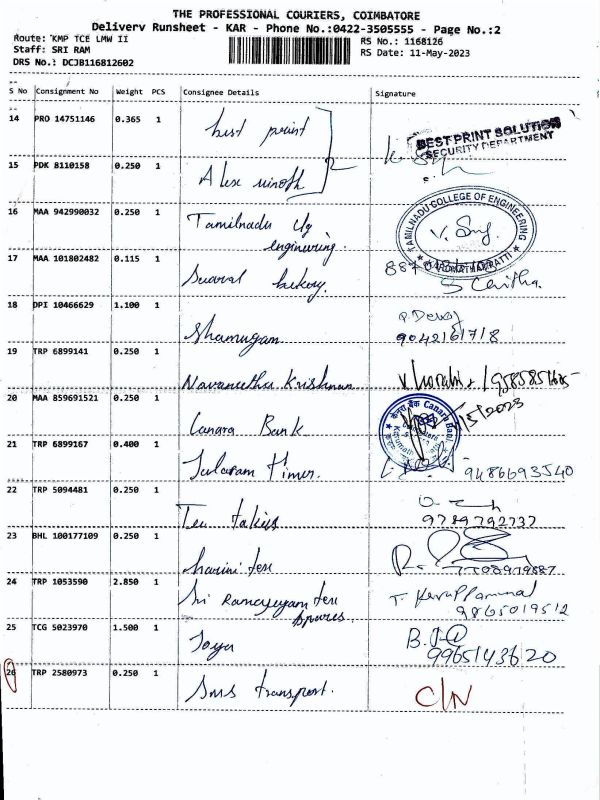 THE PROFESSIONAL COURIERS, COIMBATORE
Delivery Runsheet - KAR - Phone No.:0422-3505555 - Page No.:2
Route: KMP TCE LMW II
RS No.: 1168126
Staff: SRI RAM
RS Date: 11-May-2023
DRS No.: DCJB116812602
S No Consignment No Weight PCS Consignee Details Signature
14 PRO 14751146 0.365 1 best print
BEST PRINT SOLUTION
SECURITY DEPARTMENT
15 PDK 8110158 0.250 1 Alex vinoth
16 MAA 942990032 0.250 1 Tamilnadu Clg
engineering.
TAMILNADU COLLEGE OF ENGINEERING
KARUMATHAMPATTI
17 MAA 101802482 0.115 1 bakery.
18 DPI 10466629 1.100 1 Shamugam
9042161718
19 TRP 6899141 0.250 1 Navaneetha Krishnan
20 MAA 859691521 0.250 1 Canara Bank
केनरा बैंक Canara Bank
21 TRP 6899167 0.400 1 Tularam timer.
9486693540
22 TRP 5094481 0.250 1 Teu takies
9789792737
23 BHL 100177109 0.250 1 harini tex
24 TRP 1053590 2.850 1 Sri Ramajeyam tex
spares.
9865019512
25 TCG 5023970 1.500 1 Joya
9965143620
26 TRP 2580973 0.250 1 Sms transport.
C/N